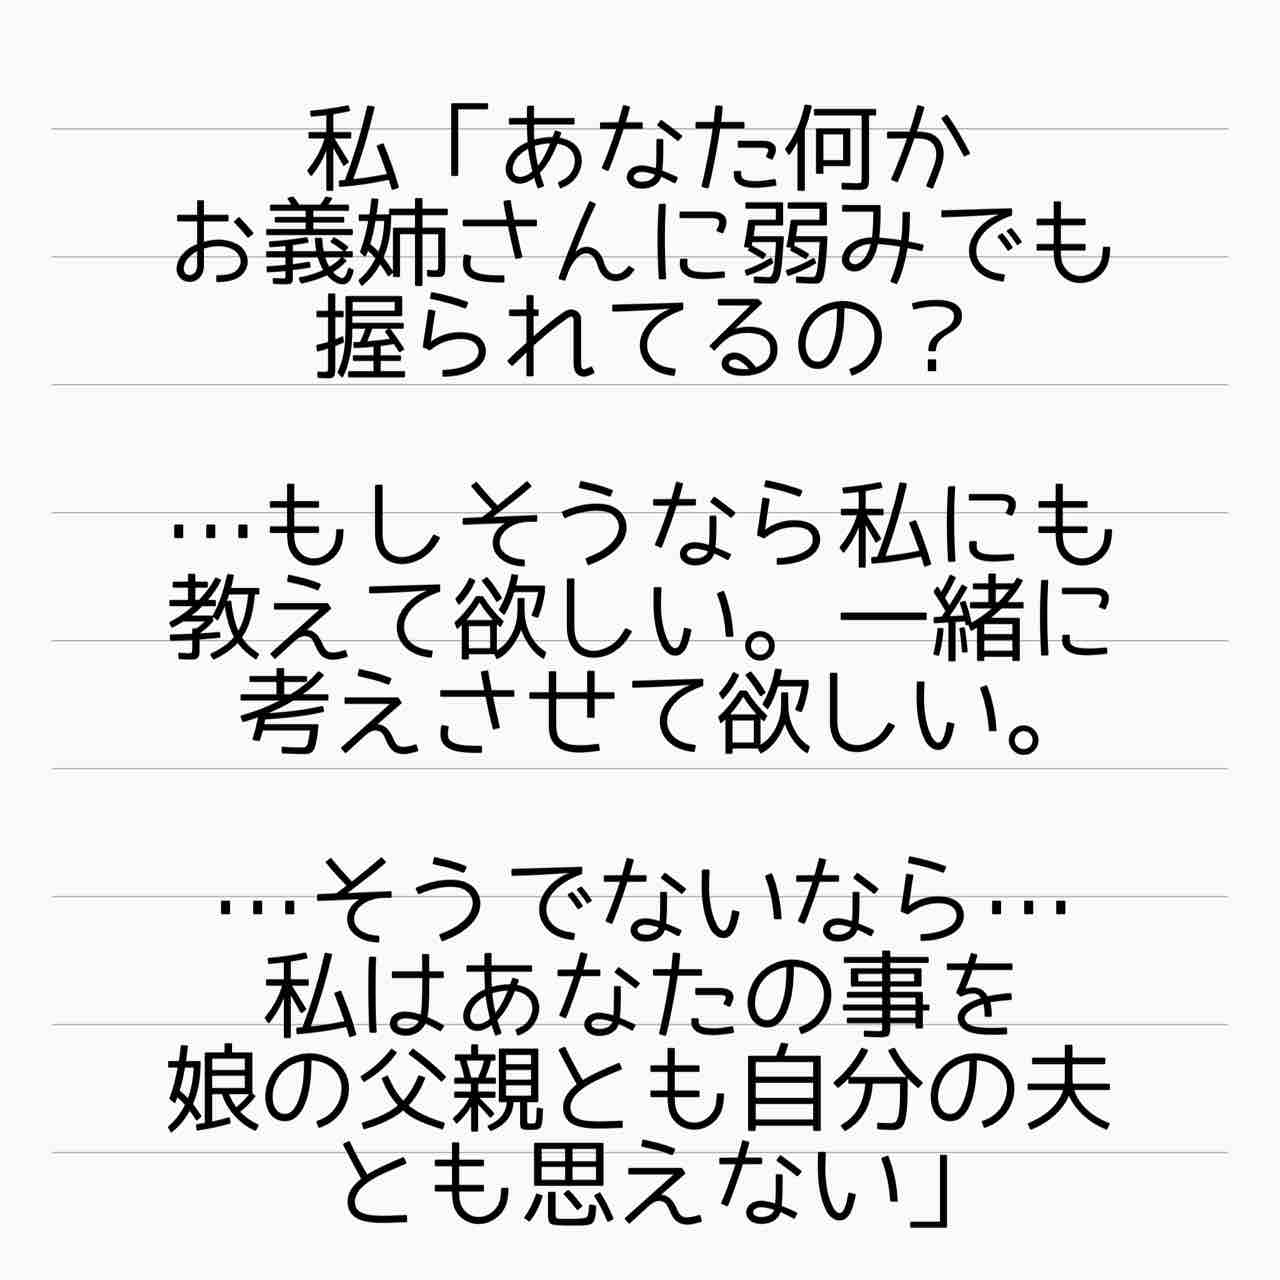 私「あなた何か
お義姉さんに弱みでも
握られてるの？
…もしそうなら私にも
教えて欲しい。一緒に
考えさせて欲しい。
…そうでないなら…
私はあなたの事を
娘の父親とも自分の夫
とも思えない」